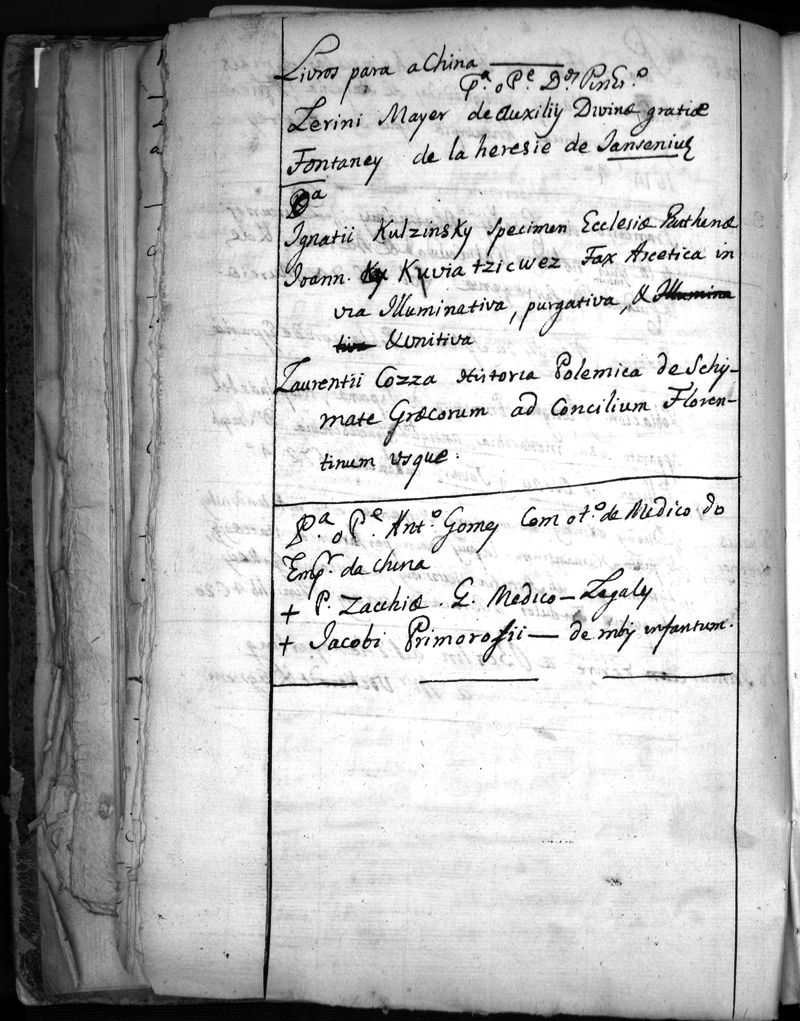 Livros para a China
P.ª o P.e D.os Pinhr.o
Lerini Mayer de auxilijs Divinæ gratiæ
Fontaney de la heresie de Jansenius
Dª
Ignatii Kulzinsky Specimen Ecclesiæ Ruthenæ
Joann. Kuviatzicwez Fax Ascetica in
via Illuminativa, purgativa, & Illumina
tiva & unitiva
Laurentii Cozza Historia Polemica de Schy-
mate Græcorum ad Concilium Floren-
tinum usque.
P.ª o P.e Ant.o Gomes Com o t.o de Medico do
Emp.r da China
+ P. Zacchiæ. G. Medico - Legales
+ Jacobi Primorosii — de mbis infantum.